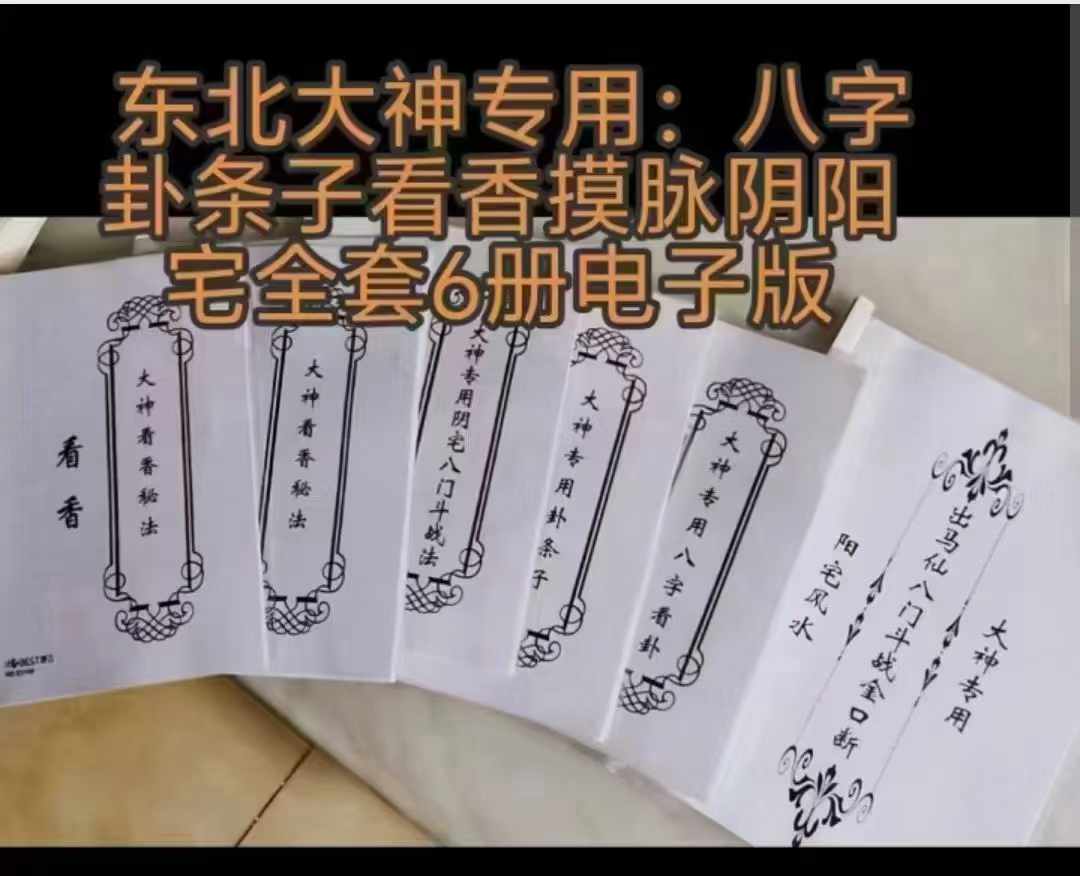 东北大神专用：八字
卦条子看香摸脉阴阳
宅全套6册电子版
看香
大神看香秘法
大神看香秘法
大神专用阴宅八门斗战法
大神专用卦条子
大神专用八字看卦
阳宅风水
出马仙八门斗战金口断
大神专用
BEST